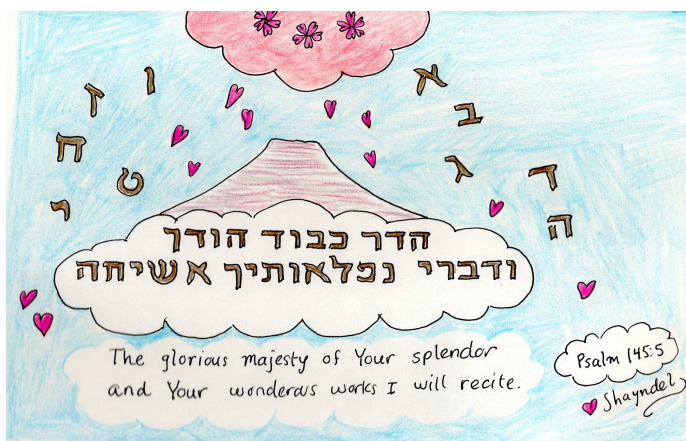 א
ב
ג
ד
ה
ו
ז
ח
ט
י
הדר כבוד הודך
ודברי נפלאותיך אשיחה
The glorious majesty of Your splendor
and Your wonderous works I will recite.
Psalm 145:5
Shayndel